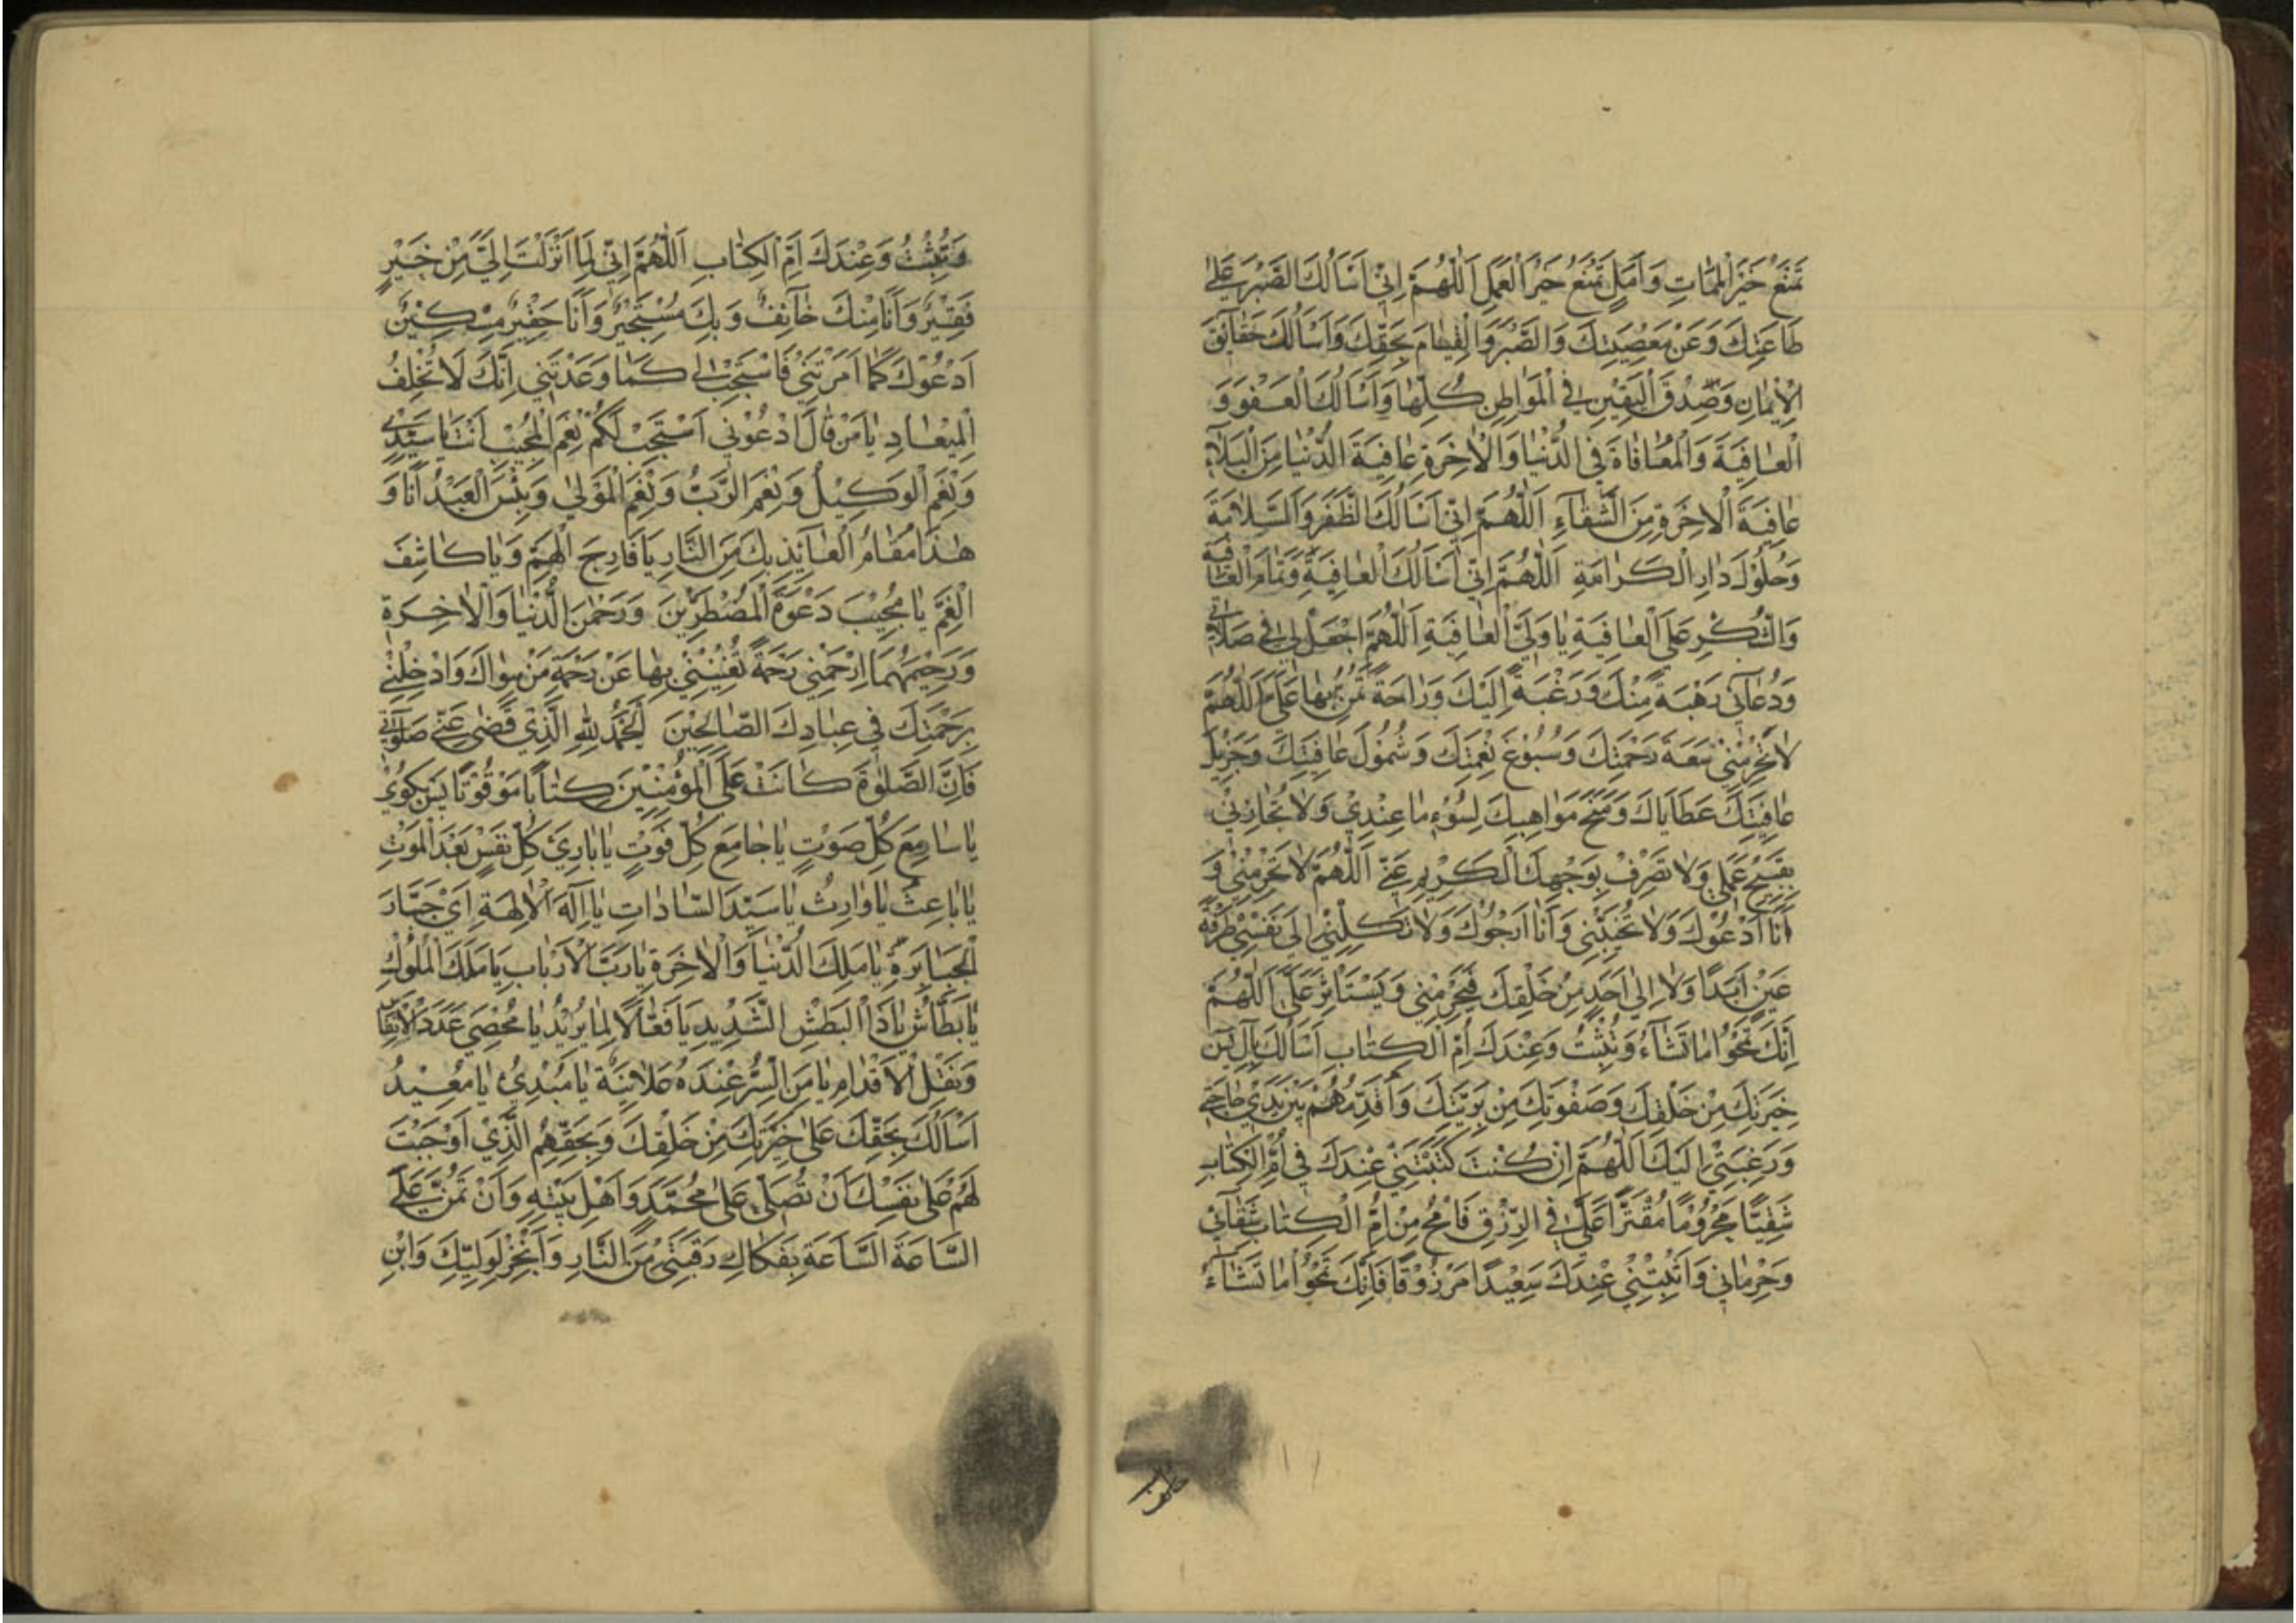 تَمْنَعُ خَيْرَ الْمَمَاتِ وَاَمَلٍ تَمْنَعُ خَيْرَ الْعَمَلِ اَللّٰهُمَّ اِنّٖي اَسْاَلُكَ الصَّبْرَ عَلٰى
طَاعَتِكَ وَعَنْ مَعْصِيَتِكَ وَالصَّبْرَ وَالْقِيٰامَ بِحَقِّكَ وَاَسْاَلُكَ حَقٰآئِقَ
الْاِيْمٰانِ وَصِدْقَ الْيَقٖينِ فِي الْمَوَاطِنِ كُلِّهٰا وَاَسْاَلُكَ الْعَفْوَ وَ
الْعٰافِيَةَ وَالْمُعٰافٰاةَ فِي الدُّنْيٰا وَالْاٰخِرَةِ عٰافِيَةَ الدُّنْيٰا مِنَ الْبَلٰآءِ
عٰافِيَةَ الْاٰخِرَةِ مِنَ الشَّقٰآءِ اَللّٰهُمَّ اِنّٖي اَسْاَلُكَ الظَّفَرَ وَالسَّلٰامَةَ
وَحُلُوْلَ دٰارِ الْكَرٰامَةِ اَللّٰهُمَّ اِنّٖي اَسْاَلُكَ الْعٰافِيَةَ وَتَمٰامَ الْعٰافِيَةِ
وَالشُّكْرِ عَلَى الْعٰافِيَةِ يٰا وَلِيَّ الْعٰافِيَةِ اَللّٰهُمَّ اجْعَلْ لٖي فٖي صَلٰاتٖي
وَدُعٰآئٖي رَهْبَةً مِنْكَ وَرَغْبَةً اِلَيْكَ وَرٰاحَةً تَمُنُّ بِهٰا عَلَيَّ اَللّٰهُمَّ
لٰا تَحْرِمْنٖي سَعَةَ رَحْمَتِكَ وَسُبُوْغَ نِعْمَتِكَ وَشُمُوْلَ عٰافِيَتِكَ وَجَزٖيْلَ
عٰافِيَتِكَ عَطَايَاكَ وَمِنَحَ مَوٰاهِبِكَ لِسُوْءِ مٰا عِنْدٖيْ وَلٰا تُجٰازِنٖيْ
بِقَبٖيْحِ عَمَلٖي وَلٰا تَصْرِفْ بِوَجْهِكَ الْكَرٖيْمِ عَنّٖي اَللّٰهُمَّ لٰا تَحْرِمْنٖي وَ
اَنَا اَدْعُوْكَ وَلٰا تُخَيِّبْنٖي وَاَنَا اَرْجُوْكَ وَلٰا تَكِلْنٖيْ اِلٰى نَفْسٖيْ طَرْفَةَ
عَيْنٍ اَبَدًا وَلٰا اِلٰى اَحَدٍ مِنْ خَلْقِكَ فَيَحْرِمَنٖي وَيَسْتَاْثِرَ عَلَيَّ اَللّٰهُمَّ
اِنَّكَ تَمْحُوْا مٰا تَشٰآءُ وَتُثْبِتُ وَعِنْدَكَ اُمُّ الْكِتٰابِ اَسْاَلُكَ بِاٰلِ يٰسٓ
خِيَرَتِكَ مِنْ خَلْقِكَ وَصَفْوَتِكَ مِنْ بَرِيَّتِكَ وَاُقَدِّمُهُمْ بَيْنَ يَدَيْ حٰاجَتٖي
وَرَغْبَتٖيْ اِلَيْكَ اَللّٰهُمَّ اِنْ كُنْتَ كَتَبْتَنٖيْ عِنْدَكَ فٖي اُمِّ الْكِتٰابِ
شَقِيًّا مَحْرُوْمًا مُقَتَّرًا عَلَيَّ فِي الرِّزْقِ فَامْحُ مِنْ اُمِّ الْكِتٰابِ شَقٰآئٖي
وَحِرْمٰانٖي وَاَثْبِتْنٖيْ عِنْدَكَ سَعٖيْدًا مَرْزُوْقًا فَاِنَّكَ تَمْحُوْا مٰا تَشٰآءُ
وَتُثْبِتُ وَعِنْدَكَ اُمُّ الْكِتٰابِ اَللّٰهُمَّ اِنّٖي لِمٰا اَنْزَلْتَ اِلَيَّ مِنْ خَيْرٍ
فَقٖيْرٌ وَاَنَا مِنْكَ خٰآئِفٌ وَبِكَ مُسْتَجٖيْرٌ وَاَنَا حَقٖيْرٌ مِسْكٖيْنٌ
اَدْعُوْكَ كَمٰا اَمَرْتَنٖيْ فَاسْتَجِبْ لٖي كَمٰا وَعَدْتَنٖي اِنَّكَ لٰا تُخْلِفُ
الْمٖيْعٰادِ يٰا مَنْ قٰالَ ادْعُوْنٖي اَسْتَجِبْ لَكُمْ نِعْمَ الْمُجٖيْبُ اَنْتَ يٰا سَيِّدٖيْ
وَنِعْمَ الْوَكٖيْلُ وَنِعْمَ الرَّبُّ وَنِعْمَ الْمَوْلٰى وَبِئْسَ الْعَبْدُ اَنَا وَ
هٰذٰا مَقٰامُ الْعٰآئِذِ بِكَ مِنَ النَّارِ يٰا فَارِجَ الْهَمِّ وَيٰا كٰاشِفَ
الْغَمِّ يٰا مُجٖيْبَ دَعْوَةِ الْمُضْطَرّٖيْنَ وَرَحْمٰنَ الدُّنْيٰا وَالْاٰخِرَةِ
وَرَحٖيْمَهُمَا ارْحَمْنٖي رَحْمَةً تُغْنٖيْنٖيْ بِهٰا عَنْ رَحْمَةِ مَنْ سِوٰاكَ وَادْخِلْنٖيْ
بِرَحْمَتِكَ فٖي عِبٰادِكَ الصّٰالِحٖيْنَ اَلْحَمْدُ لِلّٰهِ الَّذٖيْ قَضٰى عَنّٖي صَلٰوتٖي
فَاِنَّ الصَّلٰوةَ كٰانَتْ عَلَى الْمُؤْمِنٖيْنَ كِتٰابًا مَوْقُوْتًا پَس بكوئ
يٰا سٰامِعَ كُلِّ صَوْتٍ يٰا جٰامِعَ كُلِّ فَوْتٍ يٰا بٰارِئَ كُلِّ نَفْسٍ بَعْدَ الْمَوْتِ
يٰا بٰاعِثُ يٰا وٰارِثُ يٰا سَيِّدَ السّٰادٰاتِ يٰا اِلٰهَ الْاٰلِهَةِ اَيْ جَبَّارَ
الْجَبٰابِرَةِ يٰا مَلِكَ الدُّنْيٰا وَالْاٰخِرَةِ يٰا رَبَّ الْاَرْبٰابِ يٰا مَلِكَ الْمُلُوْكِ
يٰا بَطَّاشُ يٰا ذَا الْبَطْشِ الشَّدٖيْدِ يٰا فَعّٰالًا لِمٰا يُرٖيْدُ يٰا مُحْصِيَ عَدَدَ الْاَنْفٰاسِ
وَنَقْلِ الْاَقْدٰامِ يٰا مَنِ السِّرُّ عِنْدَهُ عَلٰانِيَةٌ يٰا مُبْدِئُ يٰا مُعٖيْدُ
اَسْاَلُكَ بِحَقِّكَ عَلٰى خِيَرَتِكَ مِنْ خَلْقِكَ وَبِحَقِّهِمُ الَّذٖيْ اَوْجَبْتَ
لَهُمْ عَلٰى نَفْسِكَ اَنْ تُصَلِّيَ عَلٰى مُحَمَّدٍ وَاَهْلِ بَيْتِهٖ وَاَنْ تَمُنَّ عَلَيَّ
السّٰاعَةَ السّٰاعَةِ بِفَكٰاكِ رَقَبَتٖيْ مِنَ النَّارِ وَاَنْجِزْ لِوَلِيِّكَ وَابْنِ